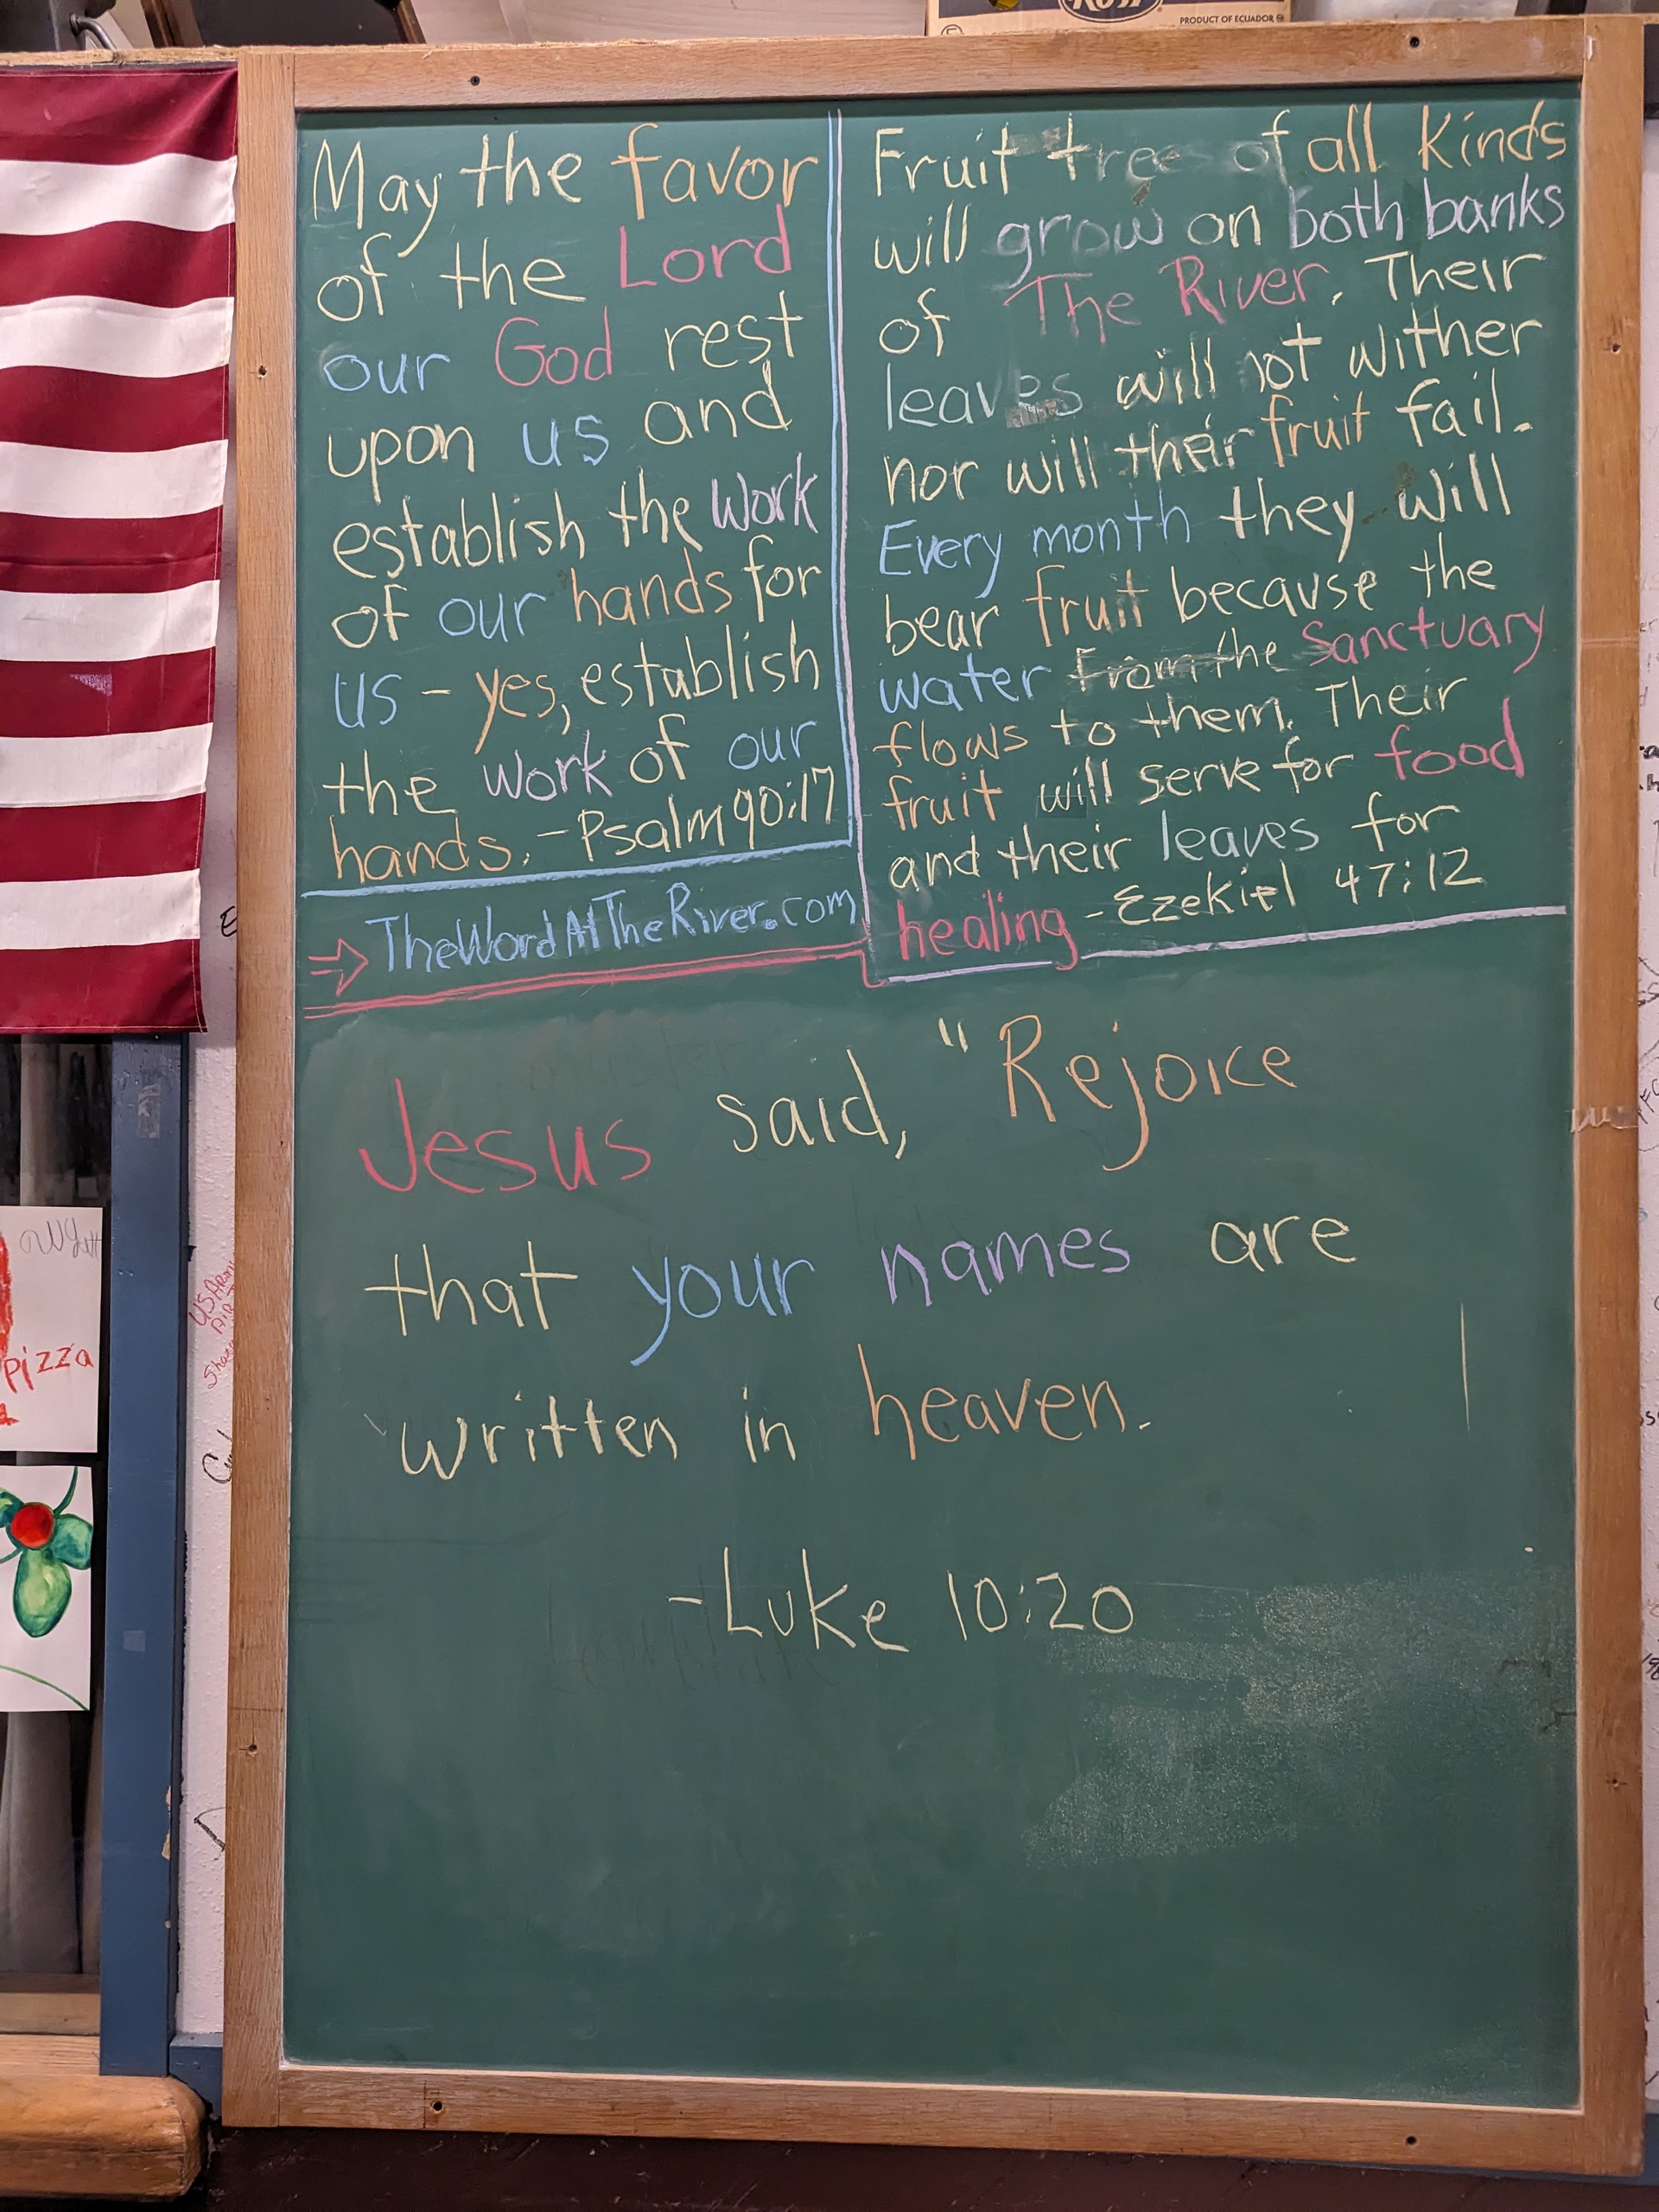 PRODUCT OF ECUADOR
May the favor
of the Lord
our God rest
upon us and
establish the work
of our hands for
us - yes, establish
the work of our
hands. - Psalm 90:17
TheWordAtTheRiver.com
Fruit trees of all kinds
will grow on both banks
of The River. Their
leaves will not wither
nor will their fruit fail.
Every month they will
bear fruit because the
water from the Sanctuary
flows to them. Their
fruit will serve for food
and their leaves for
healing - Ezekiel 47:12
Jesus said, "Rejoice
that your names are
written in heaven.
- Luke 10:20
pizza